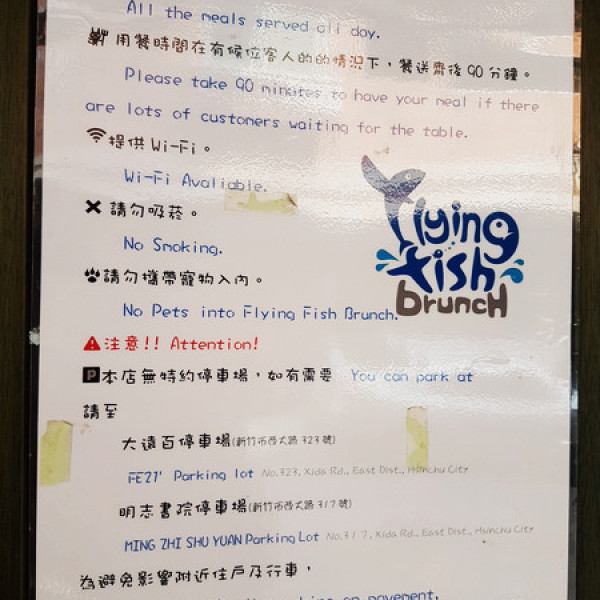 All the meals served all day.
用餐時間在有候位客人的的情況下，餐送齊後90分鐘。
Please take 90 minutes to have your meal if there
are lots of customers waiting for the table.
提供Wi-Fi。
Wi-Fi Avaliable.
請勿吸菸。
No Smoking.
請勿攜帶寵物入內。
No Pets into Flying Fish Brunch.
Flying
Fish
Brunch
注意!! Attention!
P本店無特約停車場，如有需要 You can park at
請至
大遠百停車場(新竹市西大路323號)
FE21' Parking lot No.323, Xida Rd., East Dist., Hsinchu City
明志書院停車場(新竹市西大路317號)
MING ZHI SHU YUAN Parking Lot No.317, Xida Rd., East Dist., Hsinchu City
為避免影響附近住戶及行車，
on pavement.